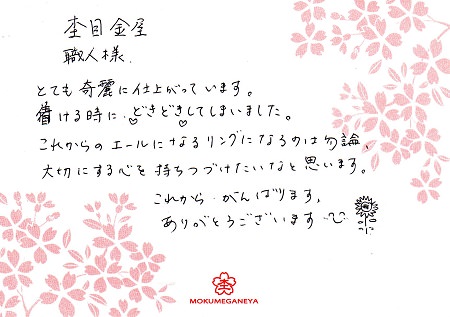 杢目金屋
職人様
とても奇麗に仕上がっています。
着ける時に、どきどきしてしまいました。
これからのエールになるリングになるのは勿論、
大切にする心を持ちつづけたいなと思います。
これから がんばります。
ありがとうございます
MOKUMEGANEYA